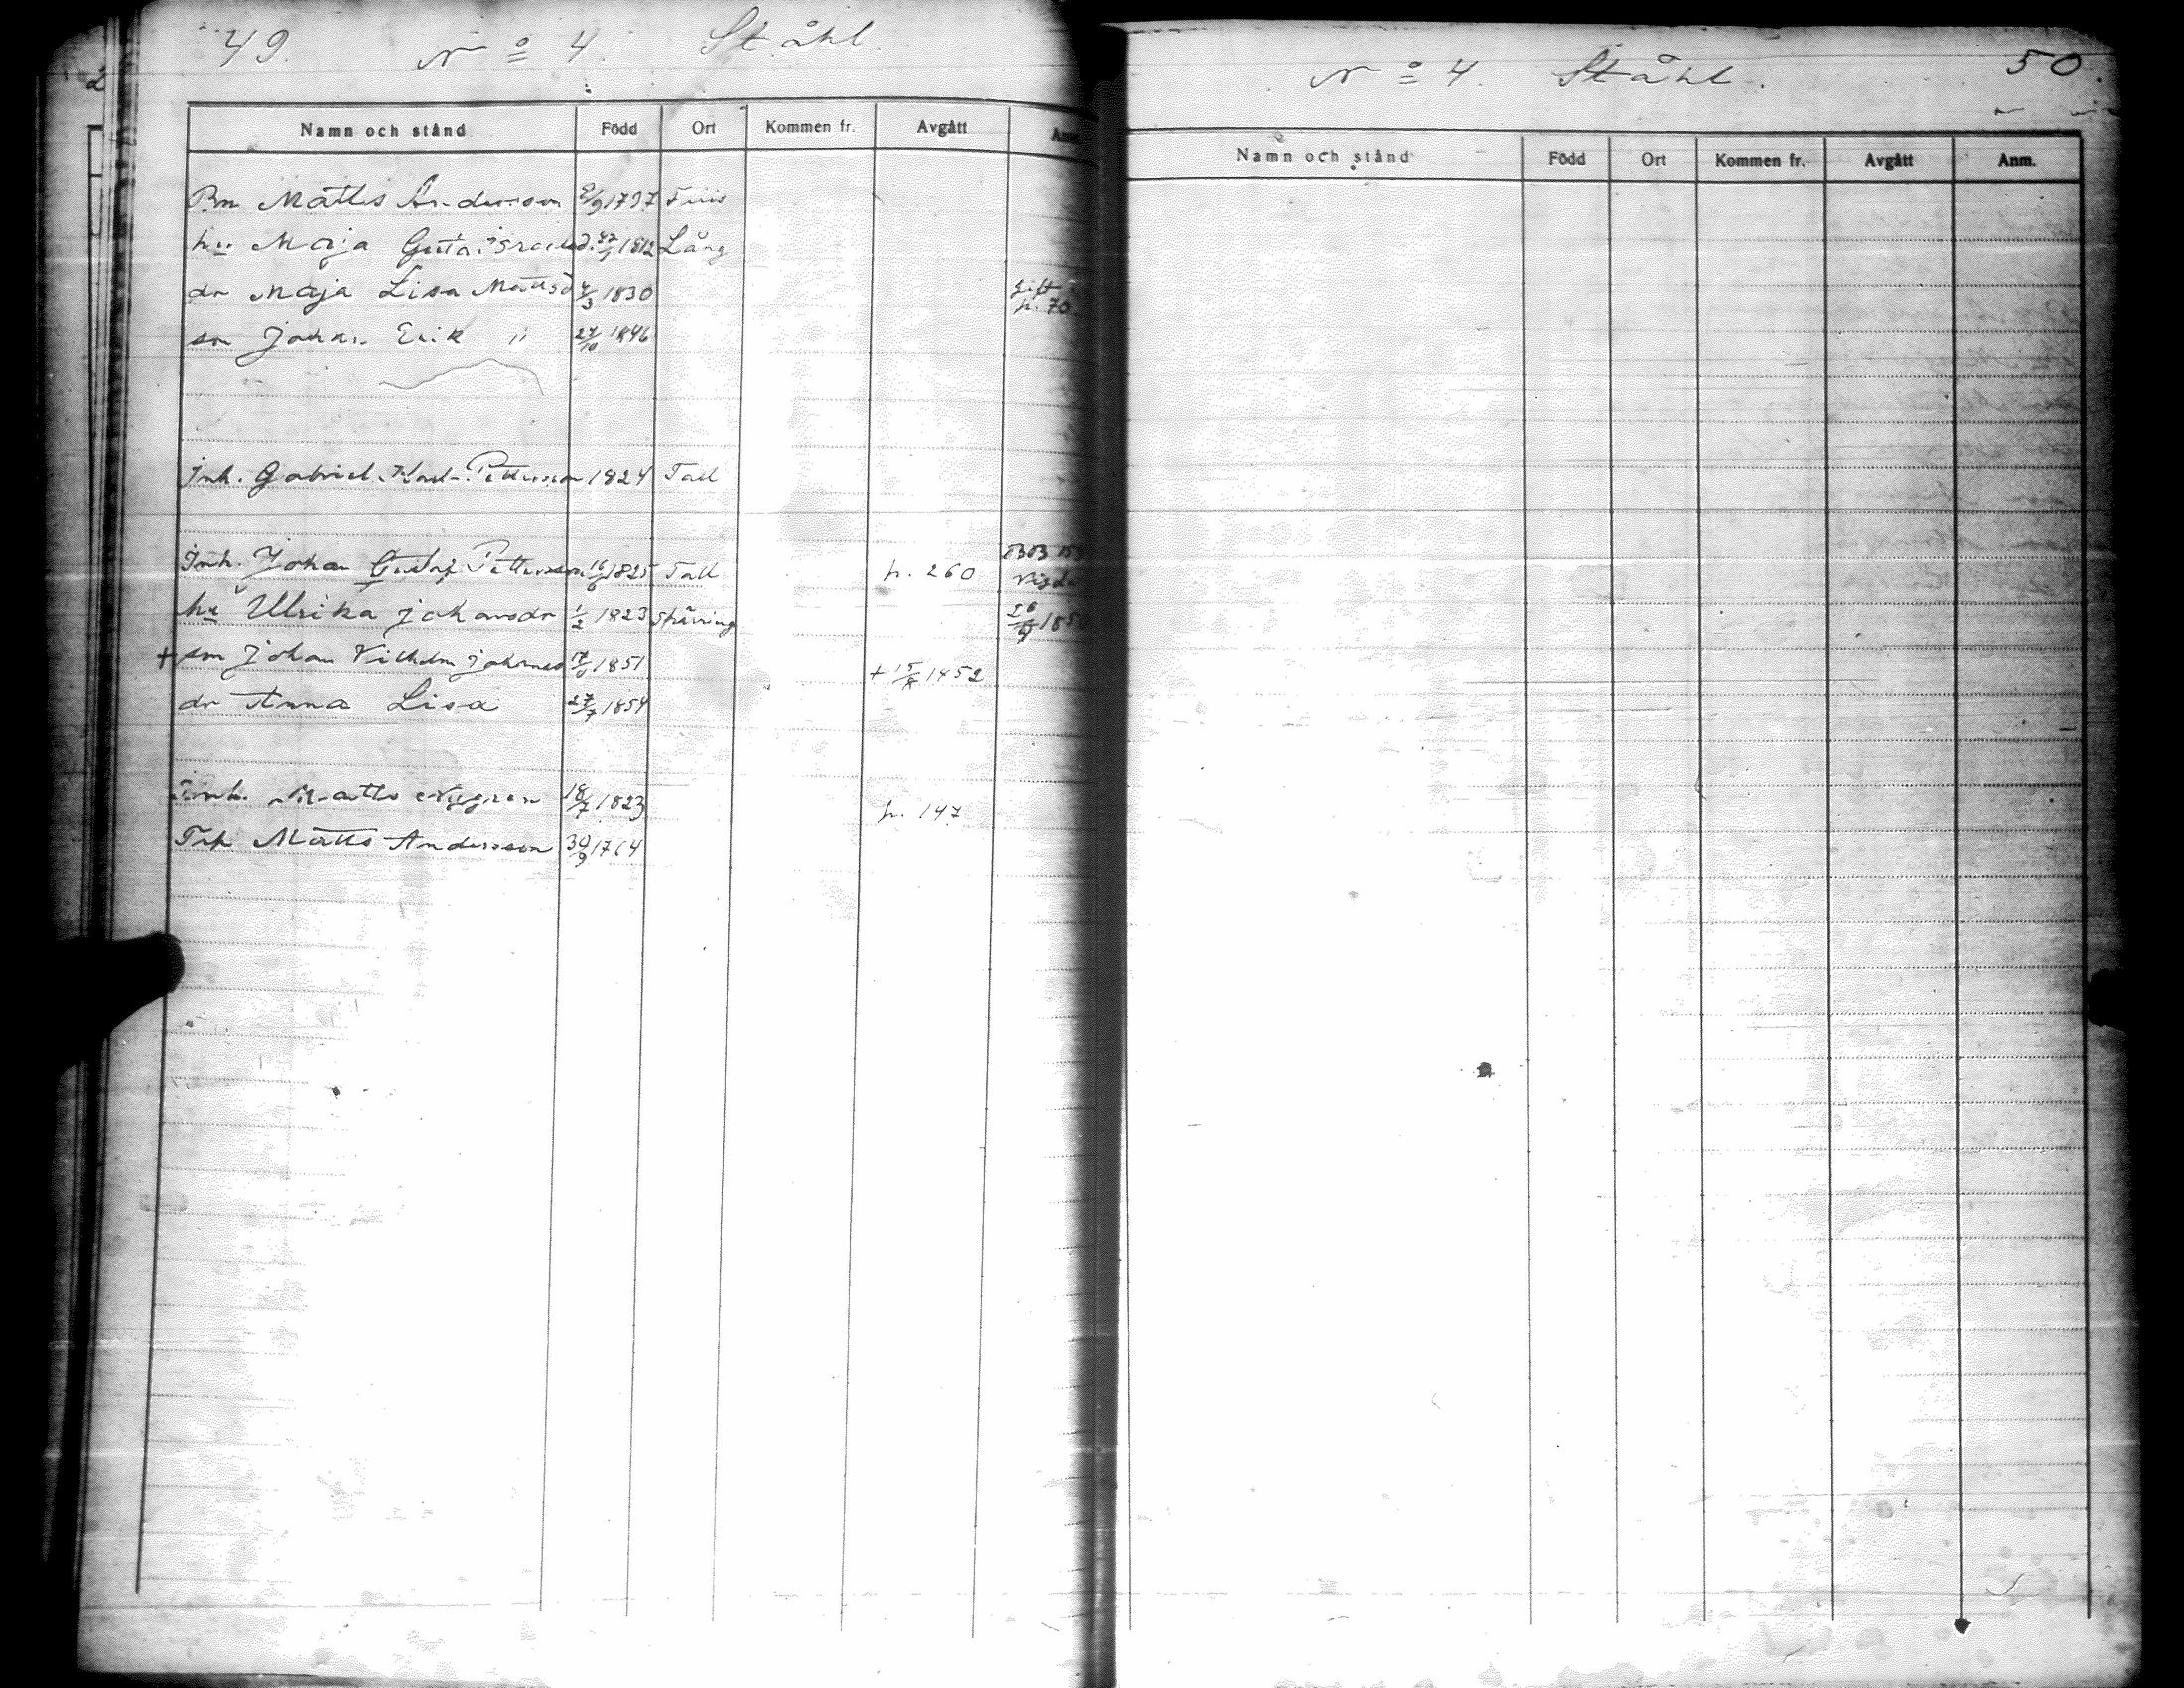 49. No 4. Ståhl.
Namn och stånd Född Ort Kommen fr. Avgått Anm.
Bn Matts Andersson 2/9 1797 Finis
hu Maja Gusta Israelsd. 1812 Lång
dr Maja Lisa Mattsd 4/3 1830 Gift p. 70
sn Johan Erik " 27/10 1846
Inh. Gabriel Karl Pettersson 1824 Tall
Inh. Johan Gustaf Pettersson 16/6 1825 Tall p. 260 Vigda
hu Ulrika Johansdr 1/2 1823 Spärring 26 1850
+ sn Johan Vilhelm Johanss 1851 + 15 1852
dr Anna Lisa 27/7 1854
Inh. Matts Nygren 18/7 1823 p. 147
Matts Andersson 30/9 1764
No 4 Ståhl. 50.
Namn och stånd Född Ort Kommen fr. Avgått Anm.